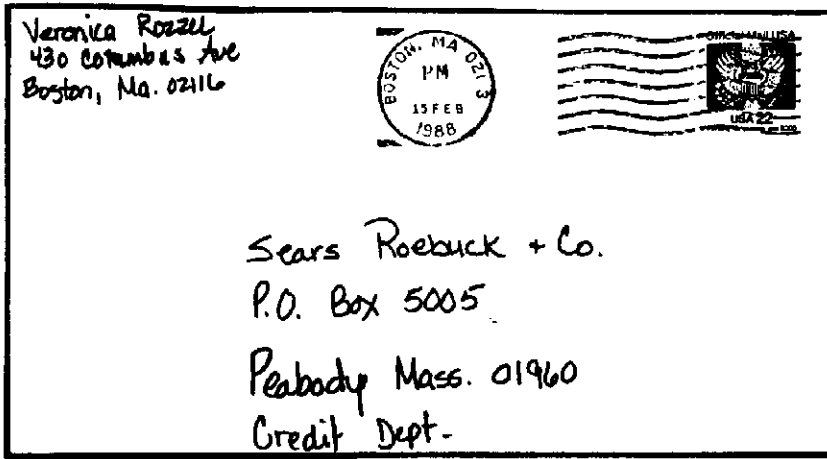 Veronica Rozzel
430 Columbus Ave
Boston, Ma. 02116
BOSTON, MA 021 3
PM
15 FEB
1988
Official Mail USA
USA 22
Sears Roebuck + Co.
P.O. Box 5005
Peabody Mass. 01960
Credit Dept.